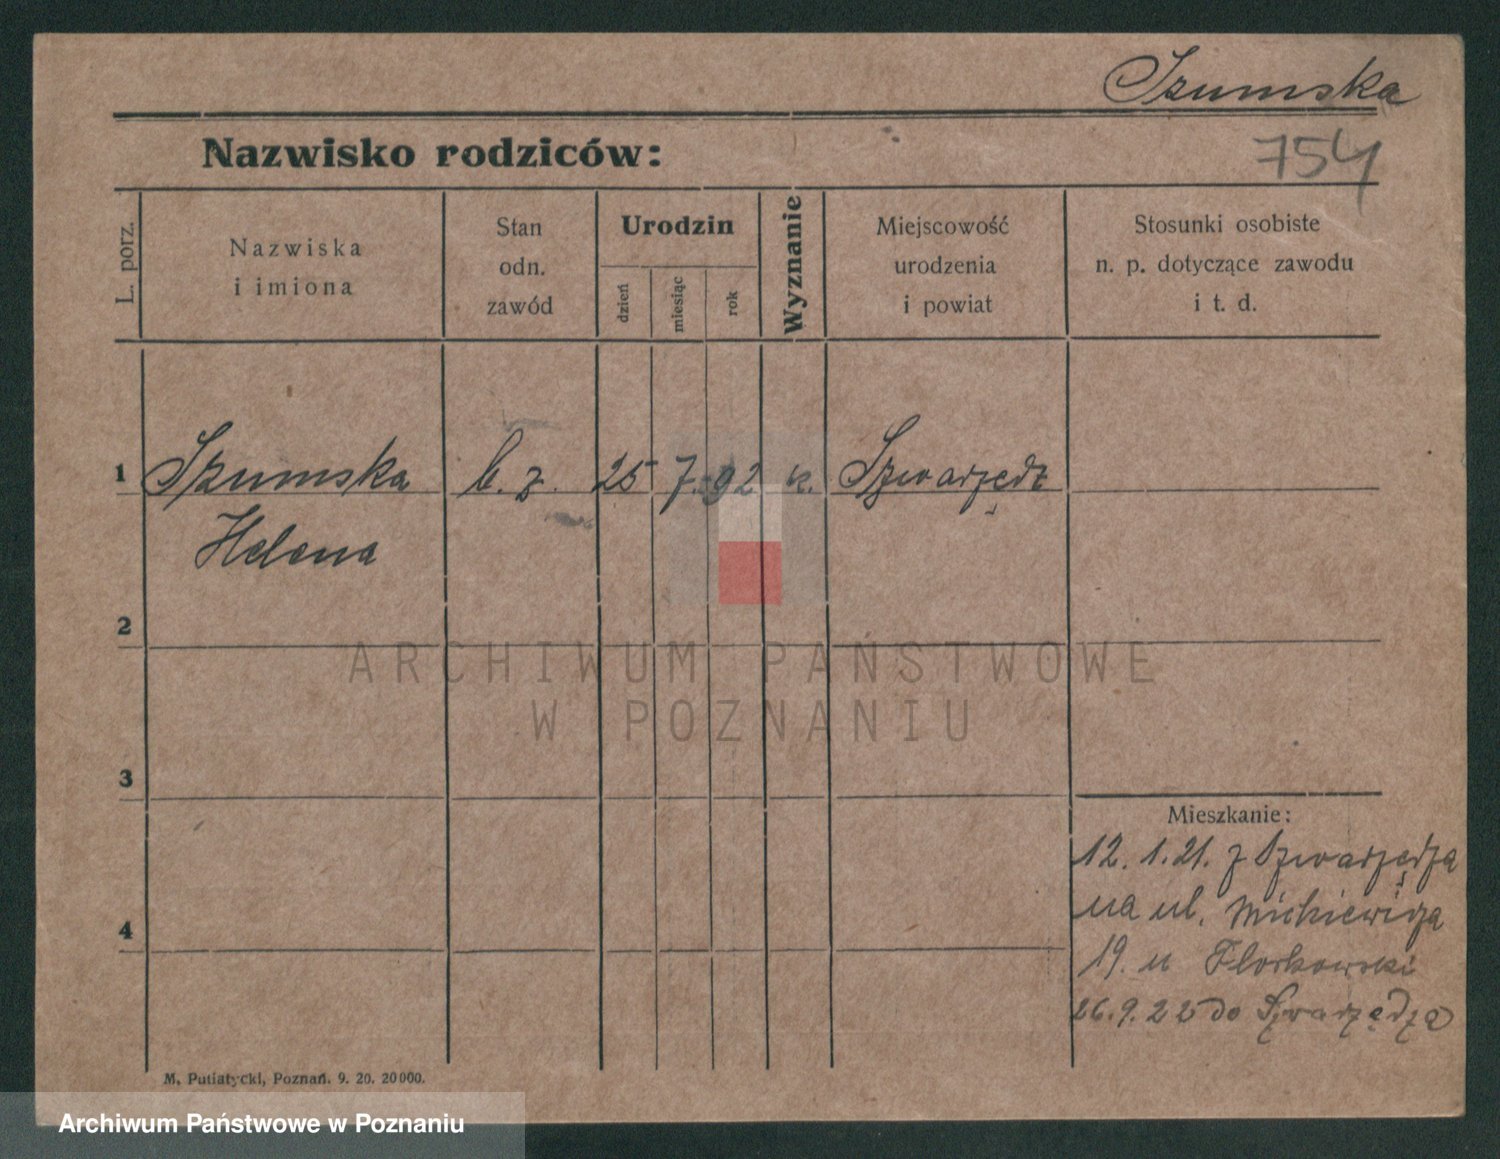 Szumska
754
Nazwisko rodziców:
L. porz.
Nazwiska
i imiona
Stan
odn.
zawód
Urodzin
dzień
miesiąc
rok
Wyznanie
Miejscowość
urodzenia
i powiat
Stosunki osobiste
n. p. dotyczące zawodu
i t. d.
1 Szumska b. z. 25 7. 92 k. Szwarzędz
Helena
2
ARCHIWUM PAŃSTWOWE
W POZNANIU
3
Mieszkanie:
12. 1. 21. z Szwarzędza
na ul. Mickiewicza
4
19. u Florkowski
26. 9. 22 do Szwarzędza
M. Putiatycki, Poznań. 9. 20. 20000.
Archiwum Państwowe w Poznaniu